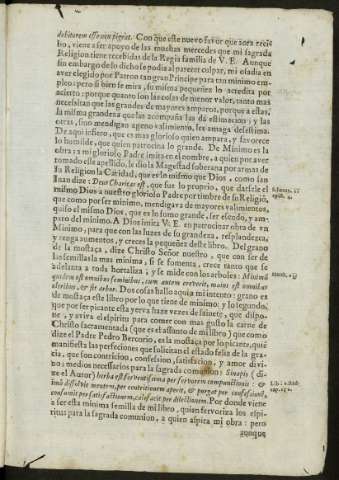 debitorem esse non pigeat. Con que este nuevo favor que aora reci-
bo, viene a ser apoyo de las muchas mercedes que mi sagrada
Religion tiene recebidas de la Regia familia de V. E. Aunque
sin embargo de lo dicho se podia al parecer culpar, mi osadia en
aver elegido por Patron tan gran Principe para tan minimo em-
pleo; pero si bien se mira, su misma pequeñez lo acredita por
acierto: porque quanto son las cosas de menor valor, tanto mas
necesitan que las grandes de mayores amparos, porque a estas,
la misma grandeza que las acompaña las dà estimacion, y las
otras, sino mendigan ageno valimiento, les amaga desestima.
De aqui infiero, que es mas glorioso quien ampara, y favorece
lo humilde, que quien patrocina lo grande. De Minimo es la
obra: a mi glorioso Padre imita en el nombre, a quien por aver
tomado este apellido, le diò la Magestad soberana por armas de
su Religion la Caridad, que es lo mismo que Dios, como san
Iuan dize: Deus Charitas est, que fue lo proprio, que darsele el
mismo Dios a nuestro glorioso Padre por timbre de su Religiō,
que como por ser minimo, mendigava de mayores valimientos,
quiso el mismo Dios, que es lo sumo grande, ser escudo, y am-
paro del minimo. A Dios imita V. E. en patrocinar obra de vn
Minimo, para que con las luzes de su grandeza, resplandezca,
y tenga aumentos, y creces la pequeñez deste libro. Del grano
de la mostaça, dize Christo Señor nuestro, que con ser de
las semillas la mas minima, si se fomenta, crece tanto que se
adelanta a toda hortaliza; y se mide con los arboles:
quidem est omnibus seminibus, cum autem creverit, maius est omnibus
oleribus, & fit arbor. Dos cosas hallo aqui a mi intento: grano es
de mostaça este libro por lo que tiene de minimo; y lo segundo,
que por ser picante esta yerva haze vezes de sainete, que dispo-
ne, y aviva el espiritu para comer con mas gusto la carne de
Christo sacramentada (que es el assunto de mi libro) que como
dize el Padre Pedro Bercorio, es la mostaça por lo picante, que
manifiesta las perfecciones que solicitan el estado feliz de la gra-
cia, que son contricion, confession, satisfacion, y amor divi-
no; medios necessarios para la sagrada comunion: Sinapis (di-
ze el Autor) herba est fervens per fervorem compunctionis: &
per contritionem aperit, & purgat per confessionē,
consumit per satisfactionem, calefacit per dilectionem. Por donde viene
a ser esta minima semilla de mi libro, quien fervoriza los espi-
ritus para la sagrada comunion, a quien aspira mi obra: pero
aunque